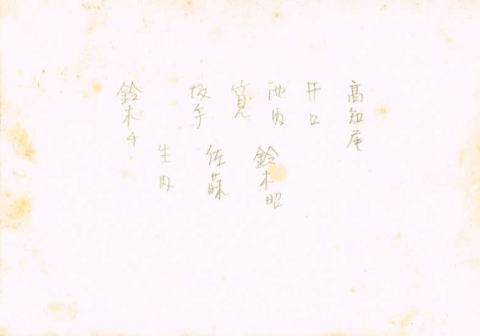 高知尾
井口
池内
鈴木昭
寛
佐藤
坂手
生内
鈴木チ